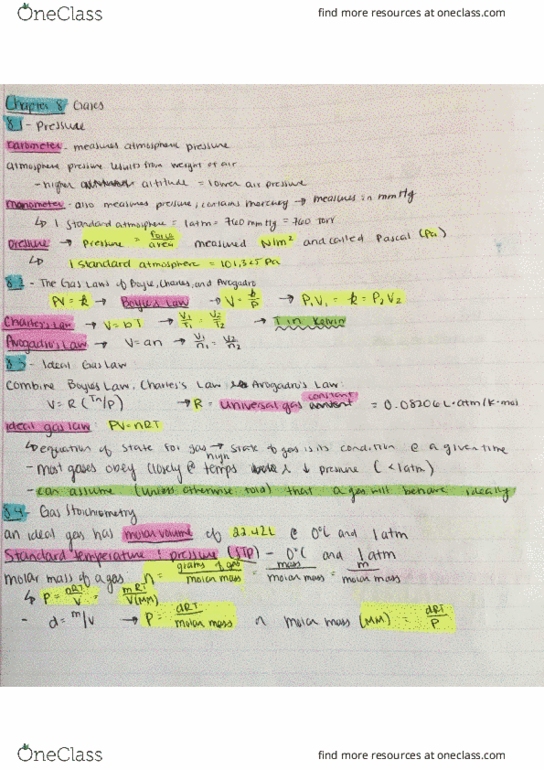 OneClass
find more resources at oneclass.com
Chapter 8 Gases
8.1 - Pressure
barometer - measures atmosphere pressure
atmosphere pressure results from weight of air
- higher altitude = lower air pressure
manometer - also measures pressure, contains mercury → measures in mmHg
↳ 1 standard atmosphere = 1 atm = 760 mmHg = 760 torr
pressure → pressure = force/area measured N/m² and called Pascal (Pa)
↳ 1 standard atmosphere = 101,325 Pa
8.2 - The Gas Laws of Boyle, Charles, and Avogadro
PV = k → Boyle's Law → V = k/P → P₁V₁ = k = P₂V₂
Charles's Law → V = bT → V₁/T₁ = V₂/T₂ → T in Kelvin
Avogadro's Law → V = an → V₁/n₁ = V₂/n₂
8.3 - Ideal Gas Law
Combine Boyles Law, Charles's Law Avogadro's Law
V = R (Tn/P) → R = universal gas constant = 0.08206 L·atm/K·mol
ideal gas law PV = nRT
↳ equation of state for gas → state of gas is its condition @ a given time
- most gases obey closely @ high temps & ↓ pressure (<1atm)
- can assume (unless otherwise told) that a gas will behave ideally
8.4 - Gas Stoichiometry
an ideal gas has molar volume of 22.42L @ 0°C and 1 atm
Standard temperature & pressure (STP) - 0°C and 1 atm
molar mass of a gas n = grams of gas/molar mass = mass/molar mass = m/molar mass
↳ P = nRT/V = mRT/V(MM)
- d = m/V → P = dRT/molar mass or molar mass (MM) = dRT/P
OneClass
find more resources at oneclass.com